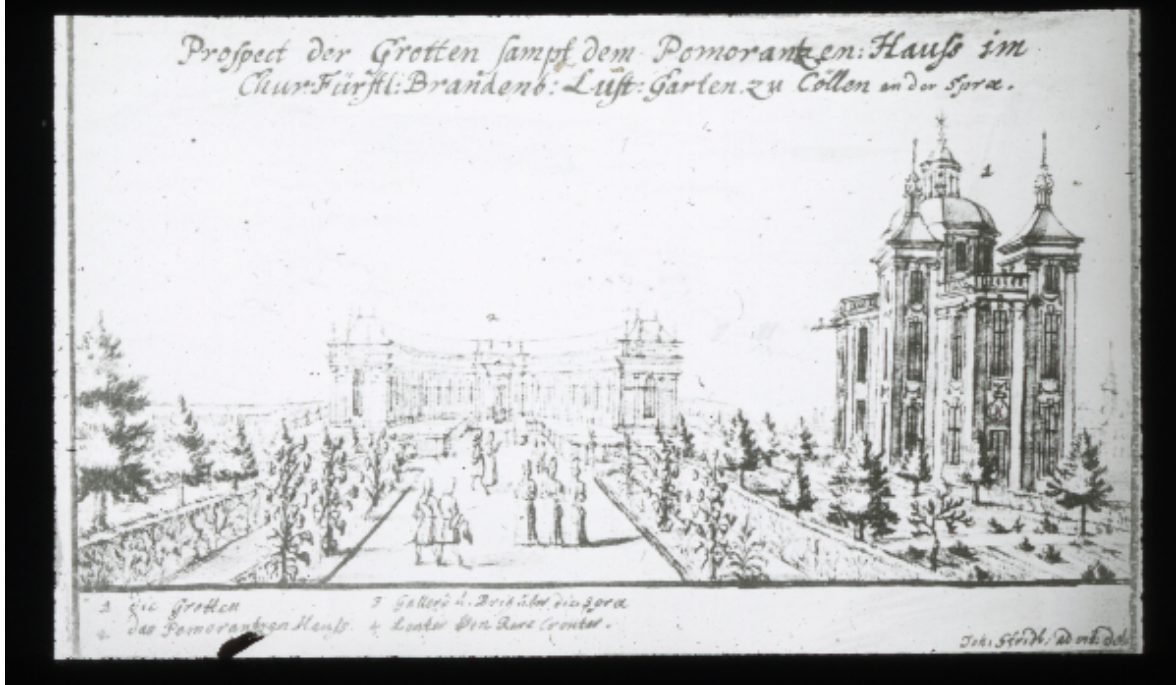 Prospect der Grotten sampt dem Pomorantzen: Hauss im
ChurFürstl: Brandenb: Lust: Garten zu Cöllen an der Spræ.
1
2
1 die Grotten
2. das Pomorantzen Hauss.
3 Gallerÿ u. über die Spræ
4
Joh: